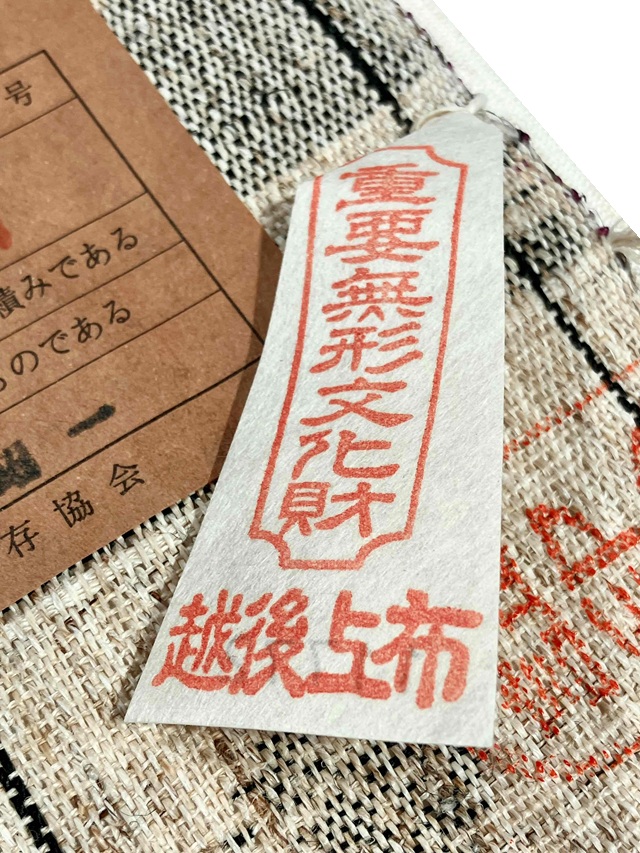 重要無形文化財
越後上布
号
積みである
ものである
一
存協会